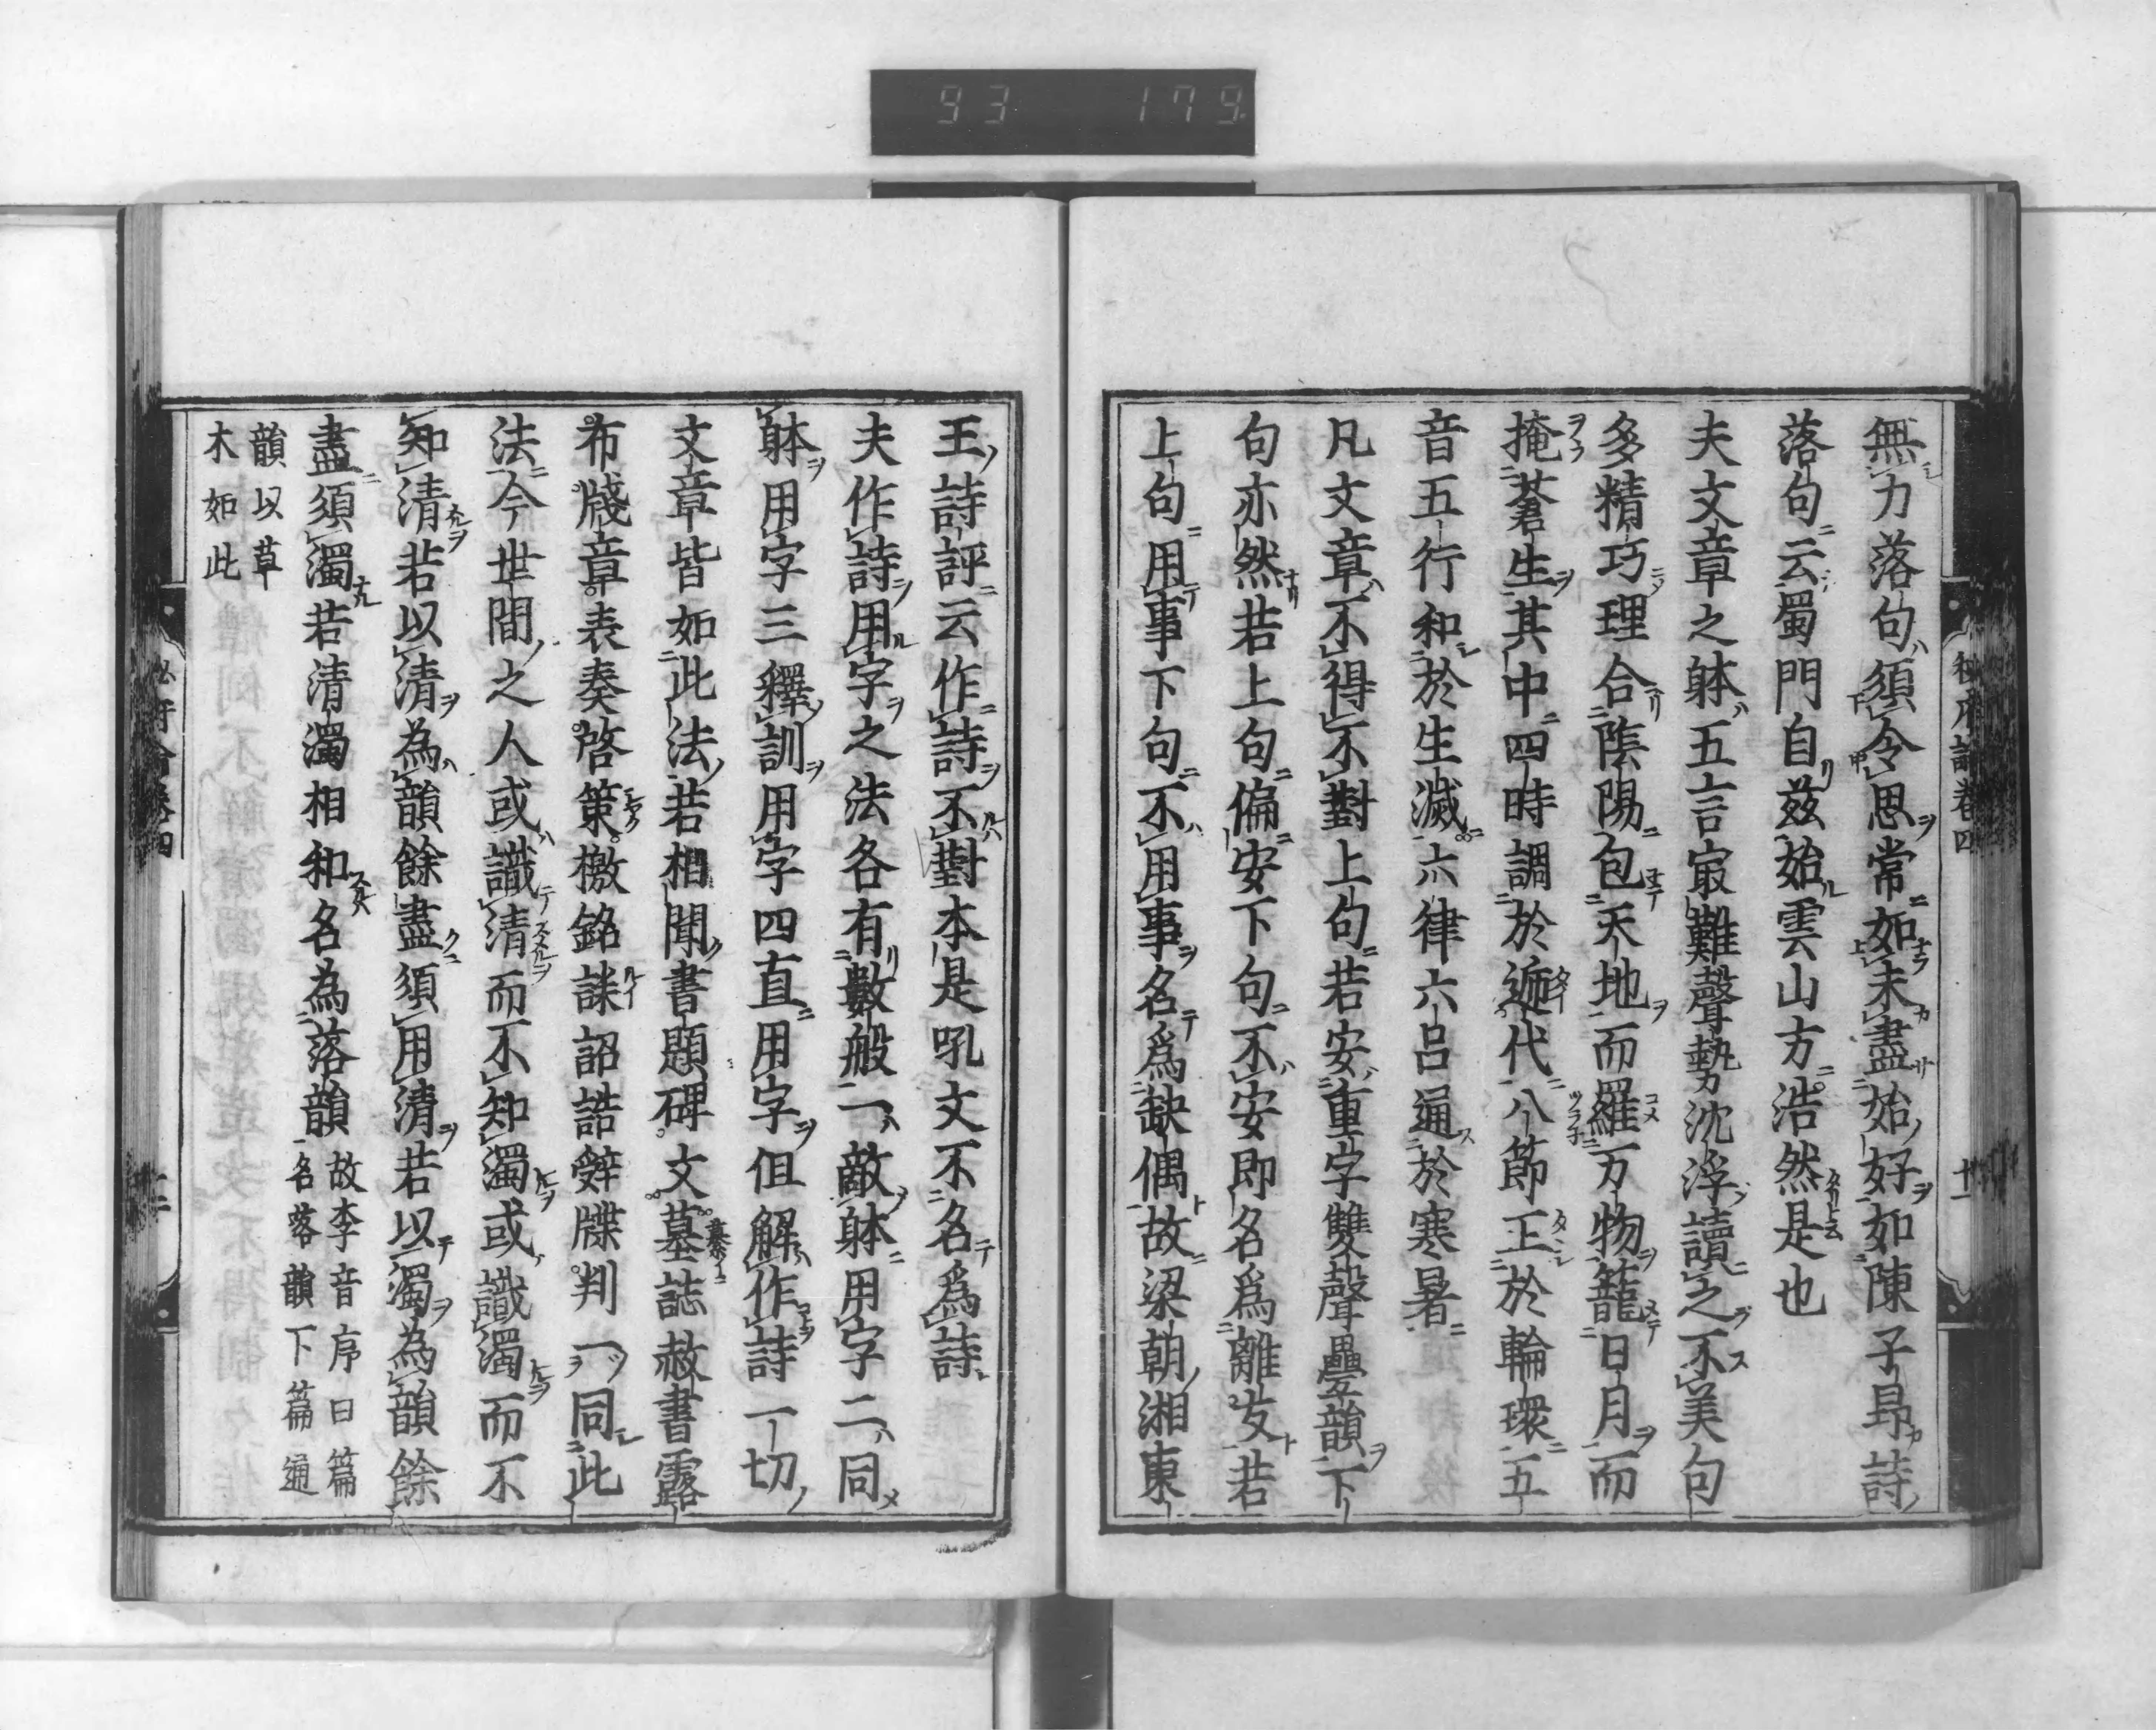 93 179
無力落句須令思常如未盡始好如陳子昂詩
落句云蜀門自茲始雲山方浩然是也
夫文章之躰五言冣難聲勢沈浮讀之不美句
多精巧理合陰陽包天地而羅万物籠日月而
掩蒼生其中四時調於遞代八節正於輪環五
音五行和於生滅六律六呂通於寒暑
凡文章不得不對上句若安重字雙聲疊韻下
句亦然若上句偏安下句不安即名爲離支若
上句用事下句不用事名爲缺偶故梁朝湘東
王詩評云作詩不對本是吼文不名爲詩
夫作詩用字之法各有數般一敵躰用字二同
躰用字三釋訓用字四直用字但解作詩一切
文章皆如此法若相聞書題碑文墓誌赦書露
布牋章表奏啓策檄銘誄詔誥辤牒判一同此
法今世間之人或識清而不知濁或識濁而不
知清若以清為韻餘盡須用清若以濁為韻餘
盡須濁若清濁相和名為落韻
故李音序曰篇
名落韻下篇通
韻以草
木如此